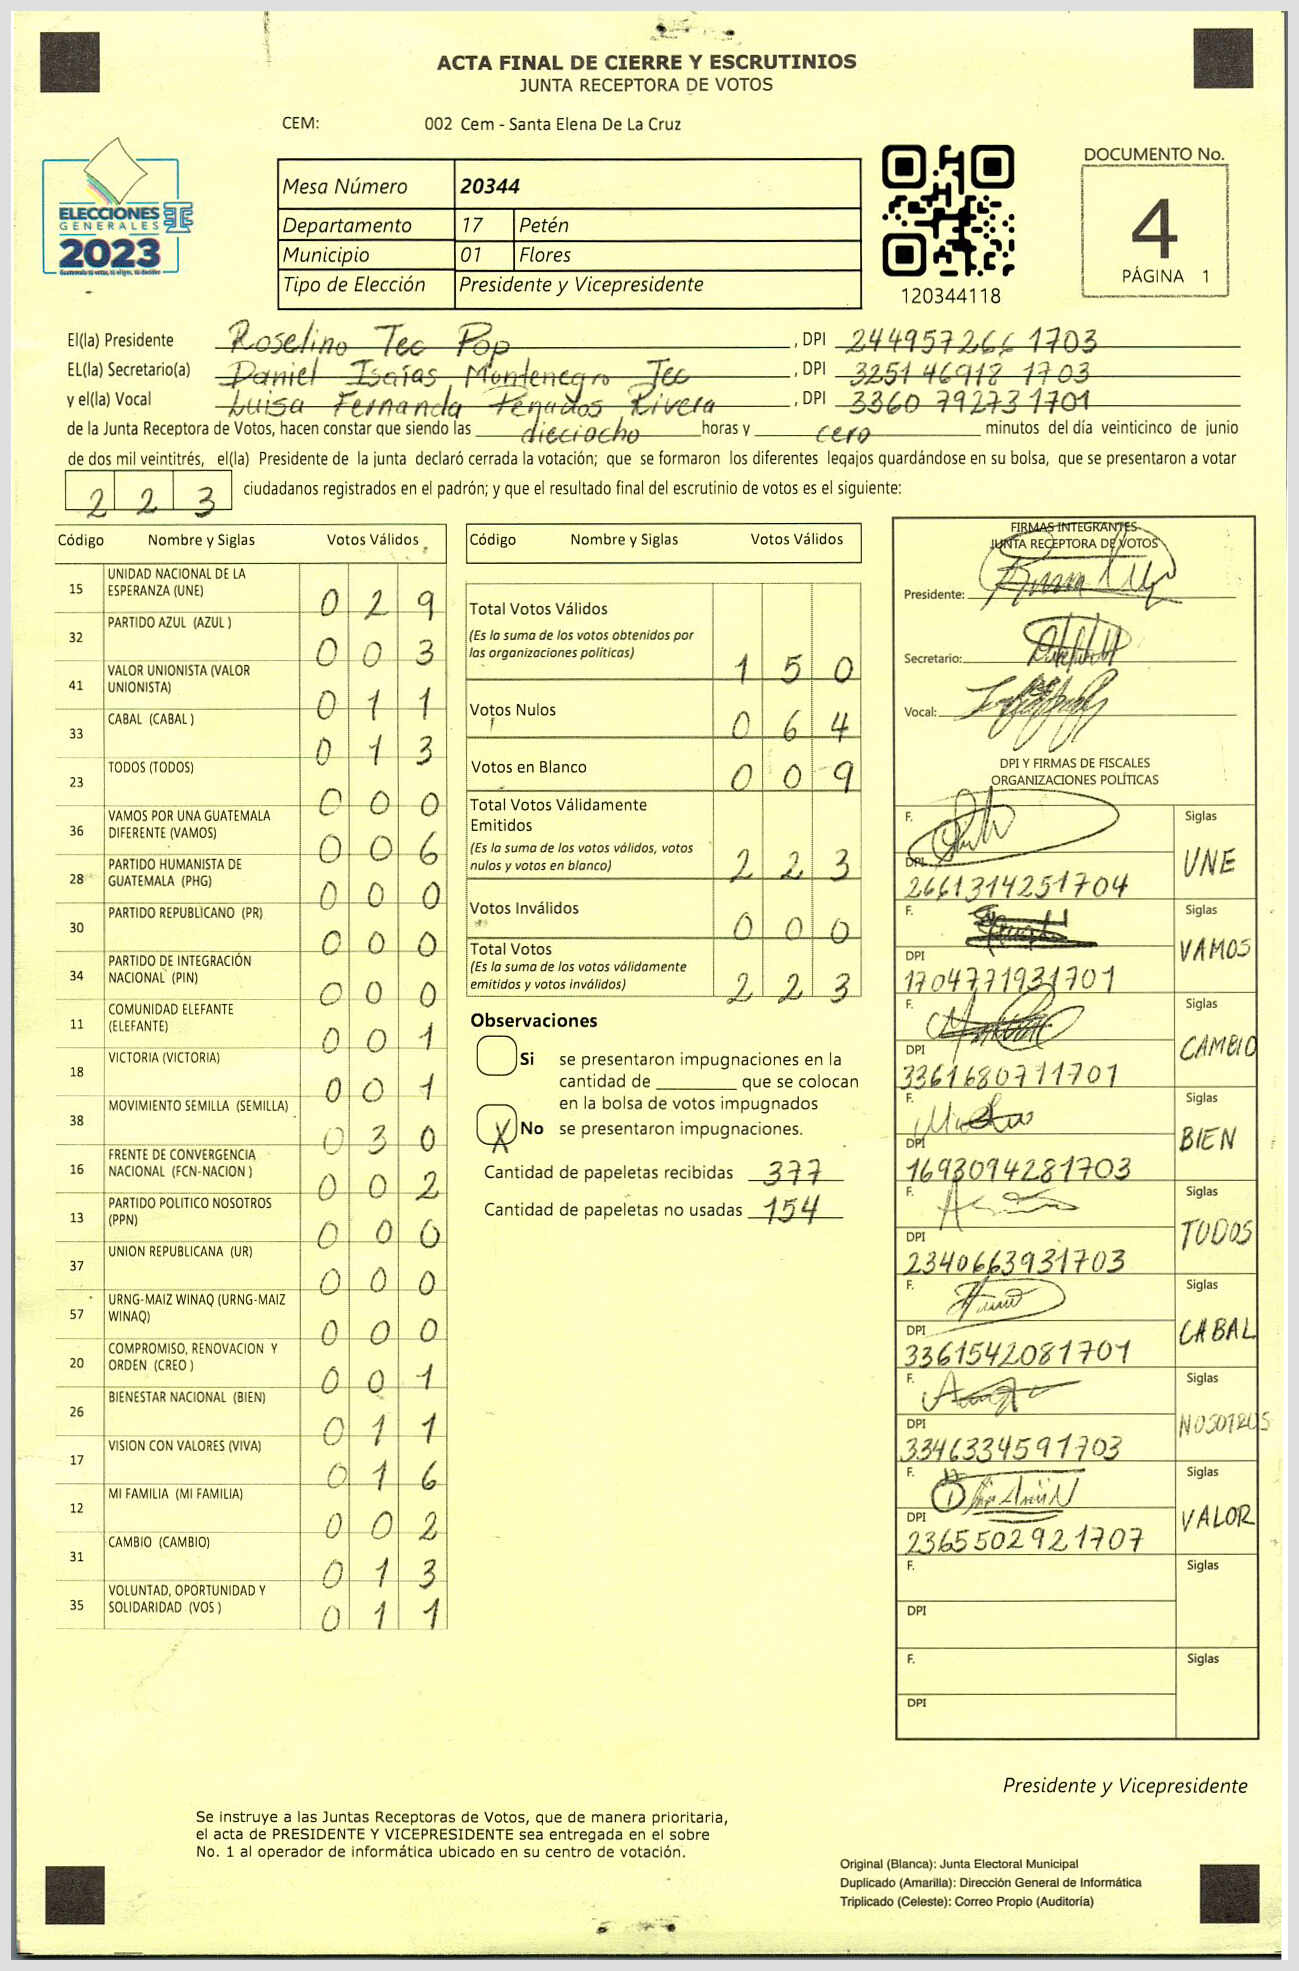 ACTA FINAL DE CIERRE Y ESCRUTINIOS
JUNTA RECEPTORA DE VOTOS
CEM: 002 Cem - Santa Elena De La Cruz
ELECCIONES
GENERALES
2023
Mesa Número 20344
Departamento 17 Petén
Municipio 01 Flores
Tipo de Elección Presidente y Vicepresidente
120344118
DOCUMENTO No.
4
PÁGINA 1
El(la) Presidente Roselino Tec Pop, DPI 244957266 1703
EL(la) Secretario(a) Daniel Isaías Montenegro Tec, DPI 3251 46918 1703
y el(la) Vocal Luisa Fernanda Penados Rivera, DPI 3360 79273 1701
de la Junta Receptora de Votos, hacen constar que siendo las dieciocho horas y cero minutos del día veinticinco de junio
de dos mil veintitrés, el(la) Presidente de la junta declaró cerrada la votación; que se formaron los diferentes legajos guardándose en su bolsa, que se presentaron a votar
2 2 3 ciudadanos registrados en el padrón; y que el resultado final del escrutinio de votos es el siguiente:
Código Nombre y Siglas Votos Válidos
15 UNIDAD NACIONAL DE LA
ESPERANZA (UNE) 0 2 9
32 PARTIDO AZUL (AZUL ) 0 0 3
41 VALOR UNIONISTA (VALOR
UNIONISTA) 0 1 1
33 CABAL (CABAL ) 0 1 3
23 TODOS (TODOS) 0 0 0
36 VAMOS POR UNA GUATEMALA
DIFERENTE (VAMOS) 0 0 6
28 PARTIDO HUMANISTA DE
GUATEMALA (PHG) 0 0 0
30 PARTIDO REPUBLICANO (PR) 0 0 0
34 PARTIDO DE INTEGRACIÓN
NACIONAL (PIN) 0 0 0
11 COMUNIDAD ELEFANTE
(ELEFANTE) 0 0 1
18 VICTORIA (VICTORIA) 0 0 1
38 MOVIMIENTO SEMILLA (SEMILLA) 0 3 0
16 FRENTE DE CONVERGENCIA
NACIONAL (FCN-NACION ) 0 0 2
13 PARTIDO POLITICO NOSOTROS
(PPN) 0 0 0
37 UNION REPUBLICANA (UR) 0 0 0
57 URNG-MAIZ WINAQ (URNG-MAIZ
WINAQ) 0 0 0
20 COMPROMISO, RENOVACION Y
ORDEN (CREO ) 0 0 1
26 BIENESTAR NACIONAL (BIEN) 0 1 1
17 VISION CON VALORES (VIVA) 0 1 6
12 MI FAMILIA (MI FAMILIA) 0 0 2
31 CAMBIO (CAMBIO) 0 1 3
35 VOLUNTAD, OPORTUNIDAD Y
SOLIDARIDAD (VOS ) 0 1 1
Código Nombre y Siglas Votos Válidos
Total Votos Válidos
(Es la suma de los votos obtenidos por
las organizaciones políticas) 1 5 0
Votos Nulos 0 6 4
Votos en Blanco 0 0 9
Total Votos Válidamente
Emitidos
(Es la suma de los votos válidos, votos
nulos y votos en blanco) 2 2 3
Votos Inválidos 0 0 0
Total Votos
(Es la suma de los votos válidamente
emitidos y votos inválidos) 2 2 3
Observaciones
Si se presentaron impugnaciones en la
cantidad de ________ que se colocan
en la bolsa de votos impugnados
X No se presentaron impugnaciones.
Cantidad de papeletas recibidas 377
Cantidad de papeletas no usadas 154
FIRMAS INTEGRANTES
JUNTA RECEPTORA DE VOTOS
Presidente:
Secretario:
Vocal:
DPI Y FIRMAS DE FISCALES
ORGANIZACIONES POLÍTICAS
F. Siglas
DPI UNE
2661314251704
F. Siglas
DPI VAMOS
1704771931701
F. Siglas
DPI CAMBIO
3361680711701
F. Siglas
DPI BIEN
1693094281703
F. Siglas
DPI TODOS
2340663931703
F. Siglas
DPI CABAL
3361542081701
F. Siglas
DPI NOSOTROS
3346334591703
F. Siglas
DPI VALOR
2365502921707
F. Siglas
DPI
F. Siglas
DPI
Presidente y Vicepresidente
Se instruye a las Juntas Receptoras de Votos, que de manera prioritaria,
el acta de PRESIDENTE Y VICEPRESIDENTE sea entregada en el sobre
No. 1 al operador de informática ubicado en su centro de votación.
Original (Blanca): Junta Electoral Municipal
Duplicado (Amarilla): Dirección General de Informática
Triplicado (Celeste): Correo Propio (Auditoría)